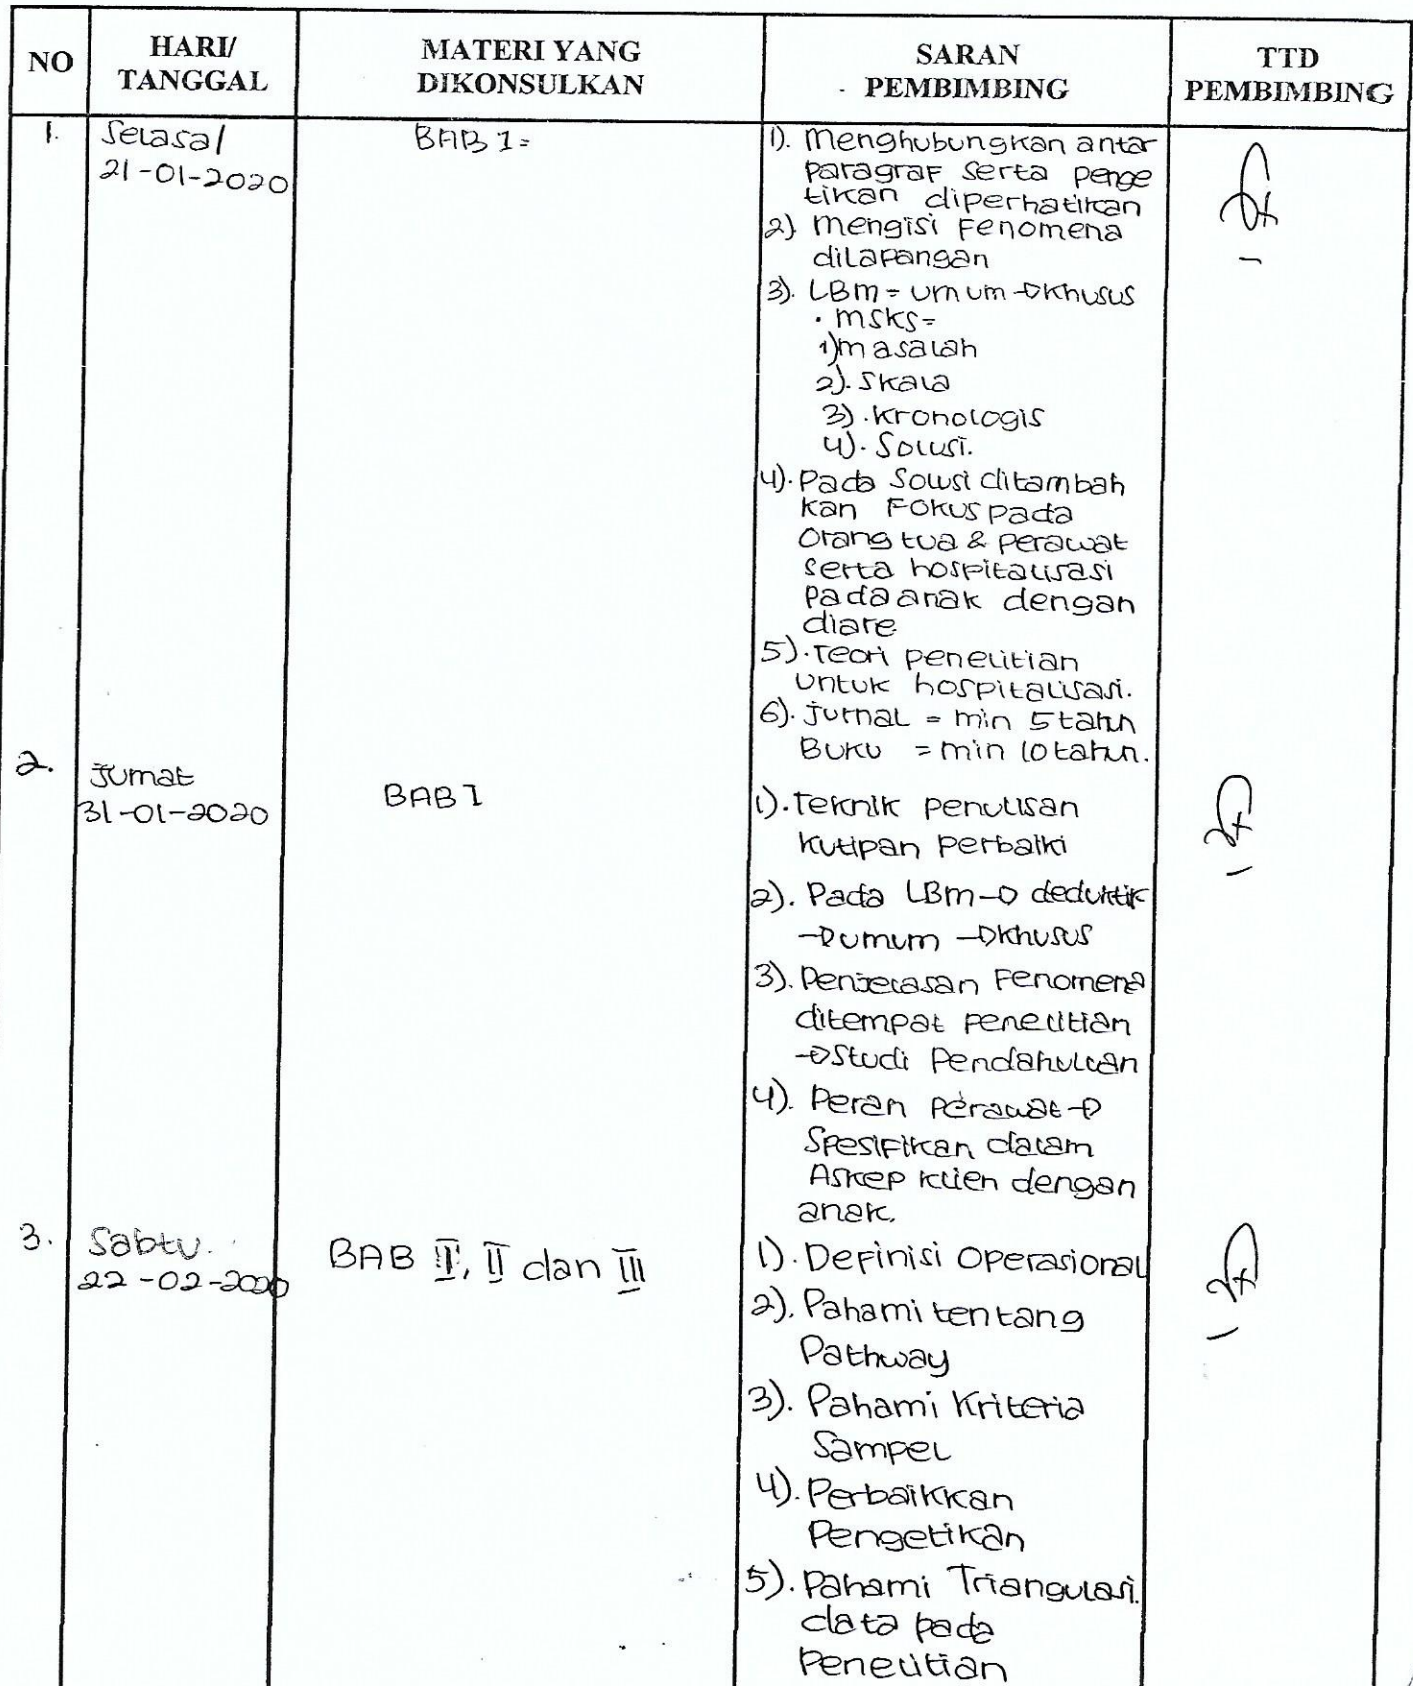 NO HARI/ MATERI YANG SARAN TTD
TANGGAL DIKONSULKAN PEMBIMBING PEMBIMBING
1. Selasa/ BAB 1= 1). Menghubungkan antar
21-01-2020 Paragraf serta penge
tikan diperhatikan
2) Mengisi Fenomena
dilapangan
3). LBM = umum → khusus
• MSKS=
1) masalah
2). Skala
3). Kronologis
4). Solusi.
4). Pada Solusi ditambah
kan Fokus pada
Orang tua & perawat
serta hospitalisasi
pada anak dengan
diare
5). Teori penelitian
untuk hospitalisasi.
6). Jurnal = min 5 tahun
Buku = min 10 tahun.
2. Jumat
31-01-2020 BAB I 1). Teknik penulisan
kutipan perbaiki
2). Pada LBM → deduktif
→ umum → khusus
3). Penjelasan Fenomena
ditempat penelitian
→ Studi Pendahuluan
4). Peran perawat →
Spesifikan dalam
Askep klien dengan
anak.
3. Sabtu. BAB I, II dan III 1). Definisi Operasional
22-02-2020
2). Pahami tentang
Pathway
3). Pahami Kriteria
Sampel
4). Perbaikkan
Pengetikan
5). Pahami Triangulasi.
data pada
Penelitian